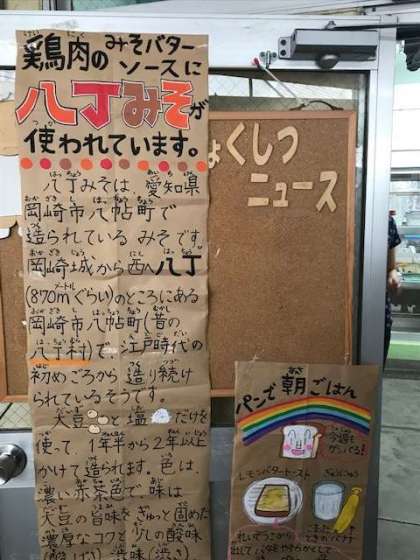 鶏鳥肉のみそバター
ソースに
八丁みそが
使われています。
八丁みそは、愛知県
岡崎市八帖町で
造られているみそです。
岡崎城から西へ八丁
(870mぐらい)のところにある
岡崎市八帖町(昔の
八丁村)で、江戸時代の
初めごろから造り続け
られているそうです。
大豆と塩だけを
使って1年半から2年以上
かけて造られます。色は、
濃い赤茶色で、味は
大豆の旨味をぎゅっと固めた
濃厚なコクと少しの酸味
しょくしつ
ニュース
パンで朝ごはん
今週も
ガンバる!
レモンバタートースト
ぎゅうにゅう